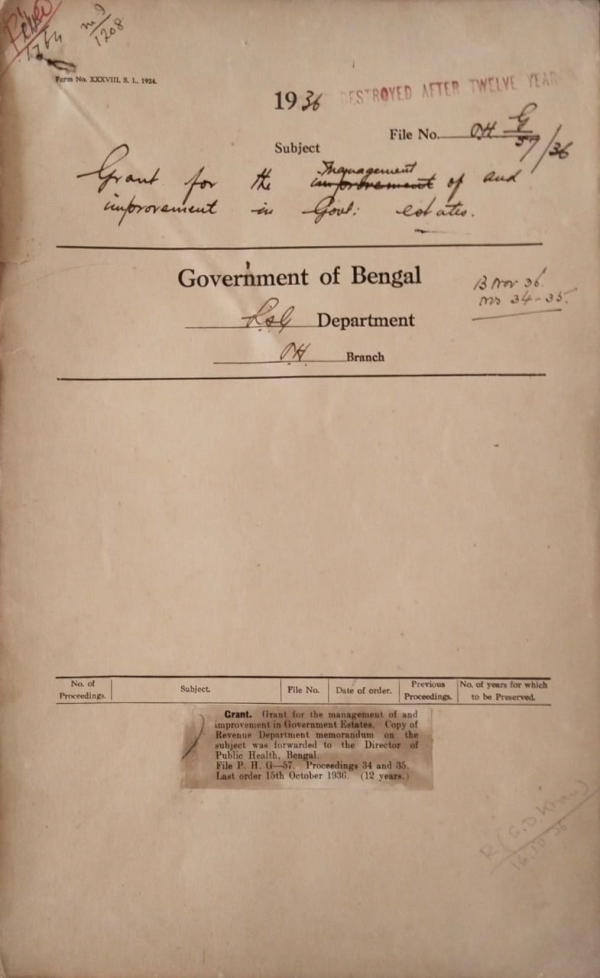 1208
Form No. XXXVIII, S. I., 1924.
1936
DESTROYED AFTER TWELVE YEAR
File No. P.H G/57/36
Subject
Grant for the management improvement of and
improvement in Govt: estates.
Government of Bengal
B Nov 36.
nos 34-35.
L.S.G Department
P.H. Branch
No. of Proceedings. Subject. File No. Date of order. Previous Proceedings. No. of years for which to be Preserved.
Grant. Grant for the management of and
improvement in Government Estates. Copy of
Revenue Department memorandum on the
subject was forwarded to the Director of
Public Health, Bengal.
File P. H. G—57. Proceedings 34 and 35.
Last order 15th October 1936. (12 years.)